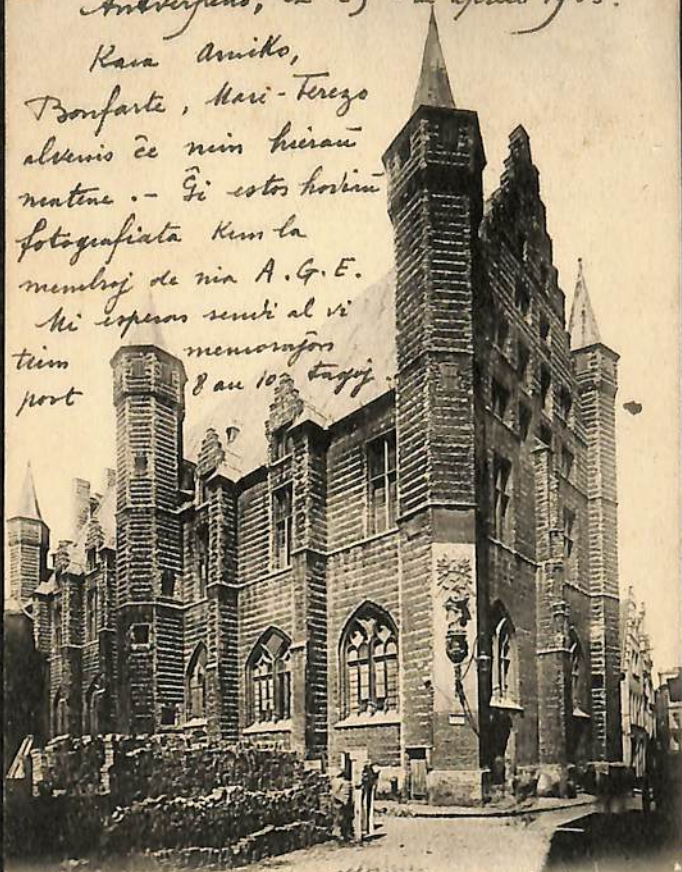 Antverpeno,
Kara Amiko,
Bonfarte, Mari-Terezo
alvenis ĉe nin hieraŭ
matene. - Ĝi estos hodiaŭ
fotografiata kun la
membroj de nia A.G.E.
Mi esperas sendi al vi
tiun memoraĵon
post 8 au 10 tagoj.